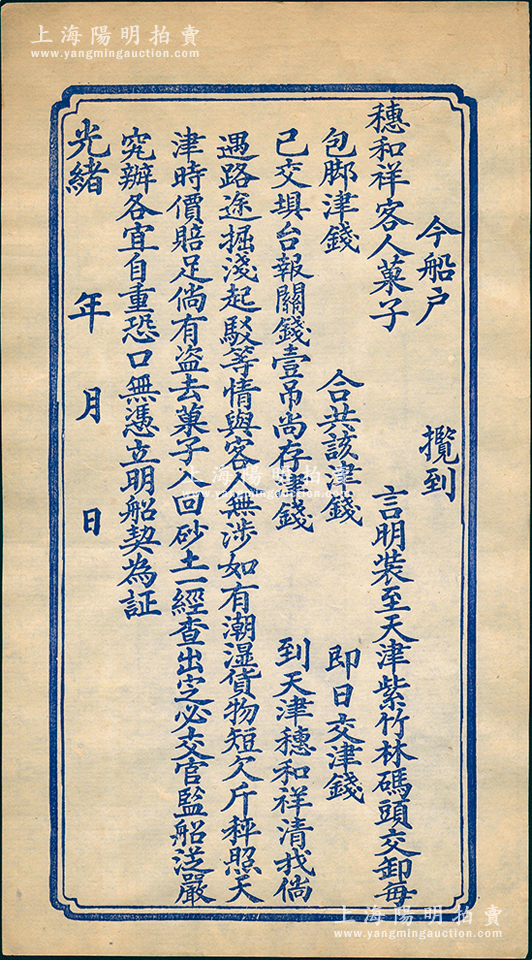 上海陽明拍賣
www.yangmingauction.com
今船户 攬到
穗和祥客人菓子 言明裝至天津紫竹林碼頭交卸每
包脚津錢 合共該津錢 即日交津錢
已交垻台報關錢壹吊尚存津錢 到天津穗和祥清找倘
遇路途掘淺起駁等情與客無涉如有潮濕貨物短欠斤秤照天
津時價賠足倘有盜去菓子入回砂土一經查出定必交官監船送嚴
究辦各宜自重恐口無憑立明船契為証
光緒 年 月 日
上海陽明拍賣
www.yangmingauction.com
上海陽明拍賣
www.yangmingauction.com